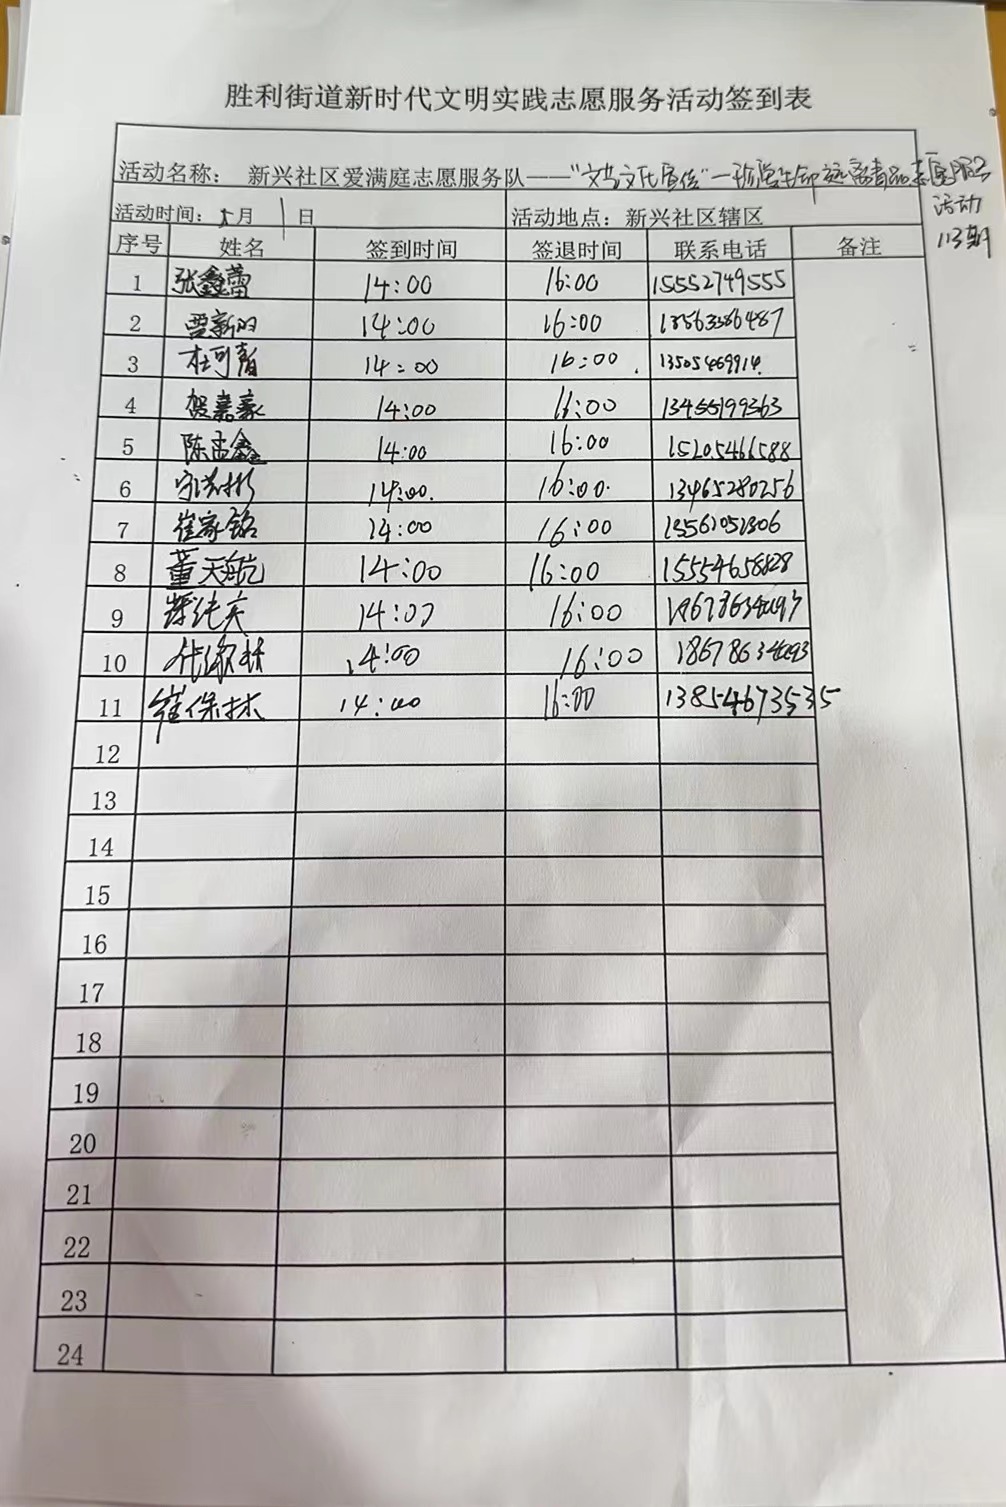 胜利街道新时代文明实践志愿服务活动签到表
活动名称: 新兴社区爱满庭志愿服务队——"文艺文化宣传"—珍爱生命 远离毒品志愿服务
活动
113期
活动时间: 5月 1日 活动地点: 新兴社区辖区
序号 姓名 签到时间 签退时间 联系电话 备注
1 张鑫蕾 14:00 16:00 15552749555
2 贾新明 14:00 16:00 18563386487
3 杜可青 14:00 16:00 13505469914
4 贺嘉豪 14:00 16:00 13455199363
5 陈孟鑫 14:00 16:00 15205466588
6 14:00 16:00 13465280256
7 崔家铭 14:00 16:00 13561051306
8 董天航 14:00 16:00 15554658828
9 14:00 16:00
10 14:00 16:00 18678634093
11 崔保林 14:00 16:00 13854673535
12
13
14
15
16
17
18
19
20
21
22
23
24